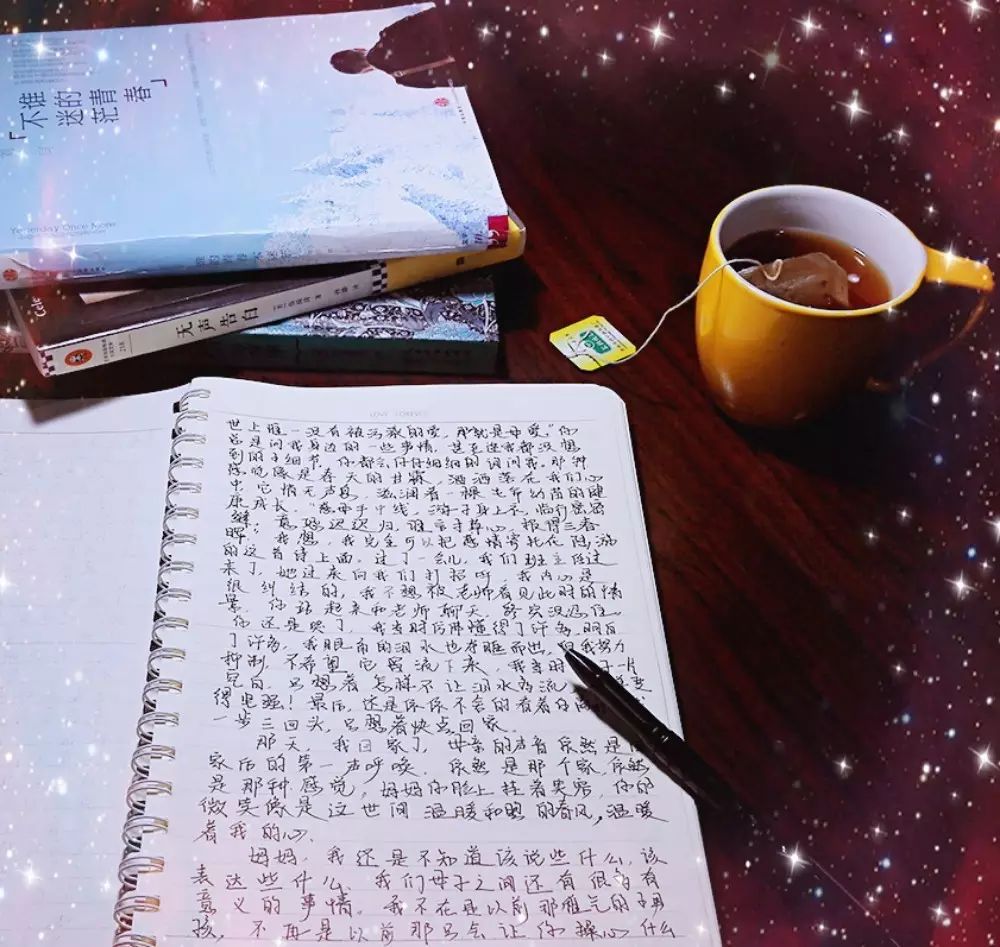 「不谁
迷的
茫青
春」
Yesterday Once More
Cele
无声告白
LOVE FOREVER
世上唯一没有被污染的爱，那就是母爱。"你
总是问我身边的一些事情，甚至连我都没想
到的小细节，你都会仔仔细细的询问我。那种
感觉像是春天的甘霖，洒落在我们心
中，它悄无声息，滋润着一棵幼苗的健
康成长。"慈母手中线，游子身上衣，临行密密
缝，意恐迟迟归，谁言寸草心，报得三春
晖"，我想，我完全可以把感情寄托在陆游
的这首诗上面。过了一会儿，我们班主任过
来了，她过来向我们打招呼，我内心是
很纠结的，我不想被老师看见此时的情
景。你站起来和老师聊天，终究没忍住，
你还是哭了，我当时仿佛懂得了许多，明白
了许多，我眼角的泪水也夺眶而出，但我努力
抑制，不希望它再流下来，我当时
空白，只想着怎样不让泪水再流，要
得坚强！最后，还是依依不舍的看着你离
一步三回头，只想着快点回家。
那天，我回家了，母亲的声音依然是
家后的第一声呼唤，依然是那个家，依然
是那种感觉，妈妈你脸上挂着笑容，你的
微笑像是这世间温暖和煦的春风，温暖
着我的心。
妈妈，我还是不知道该说些什么，该
表达些什么，我们母子之间还有很多有
意义的事情。我不在是以前那稚气的男
孩，不再是以前那只会让你操心什么